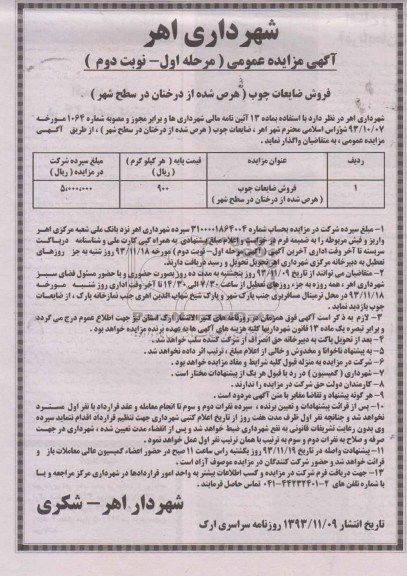 شهرداری اهر
آگهی مزایده عمومی ( مرحله اول- نوبت دوم )
فروش ضایعات چوب ( هرص شده از درختان در سطح شهر )
شهرداری اهر در نظر دارد با استفاده بماده ۱۳ آئین نامه مالی شهرداری ها و برابر مجوز و مصوبه شماره ۱۰۶۴ مـورخـه
۹۳/۱۰/۰۷ شورای اسلامی محترم شهر اهر ، ضایعات چوب ( هرص شده از درختان در سطح شهر ) ، از طریق آگـهـی
مزایده عمومی ، به متقاضیان واگذار نماید .
ردیف عنوان مزایده قیمت پایه ( هر کیلو گرم ) مبلغ سپرده شرکت
( ریال ) در مزایده ( ریال )
۱ فروش ضایعات چوب ۹۰۰ ۵،۰۰۰،۰۰۰
( هرص شده از درختان در سطح شهر )
۱- مبلغ سپرده شرکت در مزایده بحساب شماره ۳۱۰۰۰۰۱۸۶۴۰۰۴ سپرده شهرداری اهر نزد بانک ملی شعبه مرکزی اهـر
واریز و فیش مربوطه را به ضمیمه فرم درخواست و اعلام مبلغ پیشنهادی به همراه کپی کارت ملی و شناسنامه درپـاکـت
سربسته تا آخر وقت اداری آخرین آگهی ( آگهی مرحله اول- نوبت دوم ) مورخه ۹۳/۱۱/۱۸ روز شنبه به جز روزهـای
تعطیل به دبیرخانه مرکزی شهرداری اهر تحویل و رسید دریافت دارند.
۲- متقاضیان می توانند از تاریخ ۹۳/۱۱/۰۹ روز پنجشنبه به مدت ده روز بصورت حضوری و با حضور مسئول فضای سـبـز
شهرداری اهر ، همه روزه به جزء روزهای تعطیل از ساعت ۷/۳۰ الی ۱۴/۳۰ تا آخر وقت اداری روز شنبه مـورخـه
۹۳/۱۱/۱۸ در محل ترمینال مسافربری جنب پارک شهر و پارک شیخ شهاب الدین اهری جنب نمازخانه پارک ، از ضایعـات
چوب بازدید نماید .
۳- لازم به ذکر است آگهی فوق همزمان در روزنامه های کثیر الانتشار ارک استان نیز جهت اطلاع عموم درج می گردد
و برابر تبصره یک ماده ۱۳ قانون شهرداریها کلیه هزینه های آگهی ها به عهده برنده مزایده خواهد بود .
۴- بعد از تحویل پاکت به دبیرخانه حق انصراف از شرکت کننده سلب خواهد شد .
۵- به پیشنهاد ناخوانا و مخدوش و خالی از اعلام مبلغ ، ترتیب اثر داده نخواهد شد .
۶- شرکت در مزایده به منزله قبول کلیه شرایط و مفاد مزایده خواهد بود .
۷- شهرداری ( کمیسیون ) در رد یا قبول هر یک از پیشنهادات مختار است .
۸- کارمندان دولت حق شرکت در مزایده را ندارند .
۹- هر گونه پیشنهاد و تقاضا مغایر با متن آگهی مردود است .
۱۰- پس از قرائت پیشنهادات و تعیین برنده ، سپرده نفرات دوم و سوم تا انجام معامله و عقد قرارداد با نفر اول مسـتـرد
نخواهد شد و چنانچه نفر اول ظرف مدت هفت روز از تاریخ اعلام کتبی شهرداری جهت تنظیم قرارداد اقدام ننماید سپرده
وی بدون رعایت تشریفات قانونی به نفع شهرداری ضبط خواهد شد و پس از انقضاء مدت تعیین شده ، شهرداری در جهـت
صرفه و صلاح به نفرات دوم و سوم به ترتیب با همان ترتیب نفر اول عمل خواهد نمود .
۱۱- پیشنهادات واصله در تاریخ ۹۳/۱۱/۱۹ روز یکشنبه راس ساعت ۱۱ صبح در حضور اعضاء کمیسیون عالی معاملات باز و
قرائت خواهد شد و حضور شرکت کنندگان در مزایده موصوف آزاد است .
۱۳- جهت دریافت فرم شرکت در مزایده و کسب اطلاعات بیشتر به واحد امور قراردادها در شهرداری مرکز مراجعه و یا
با شماره تلفن های ۲-۰۴۱-۴۴۲۳۲۴۰۱ تماس حاصل فرمایند .
شهردار اهر- شکری
تاریخ انتشار ۱۳۹۳/۱۱/۰۹ روزنامه سراسری ارک